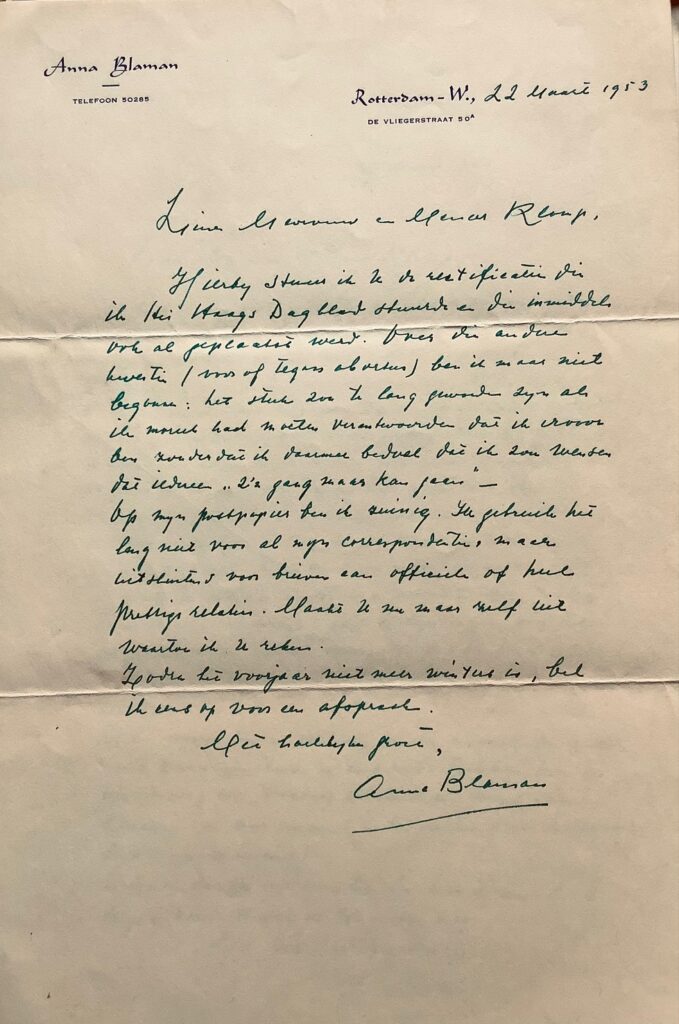 Anna Blaman
TELEFOON 50285
Rotterdam-W., 22 Maart 1953
DE VLIEGERSTRAAT 50A
Lieve Mevrouw en Meneer Klomp,
Hierby stuur ik U de rectificatie die
ik Het Haags Dagblad stuurde en die inmiddels
ook al geplaatst werd. Over die andere
kwestie (voor of tegen abortus) ben ik maar niet
begonnen: het stuk zou te lang geworden zyn als
ik moreel had moeten verantwoorden dat ik ervoor
ben zonder dat ik daarmee bedoel dat ik zou wensen
dat iedereen „z'n gang maar kan gaan" —
Op myn postpapier ben ik zuinig. Ik gebruik het
lang niet voor al myn correspondentie, maar
uitsluitend voor brieven aan officiele of heel
prettige relaties. Maakt U nu maar zelf uit
waartoe ik U reken.
Zodra het voorjaar niet meer winters is, bel
ik eens op voor een afspraak.
Met hartelyke groet,
Anna Blaman